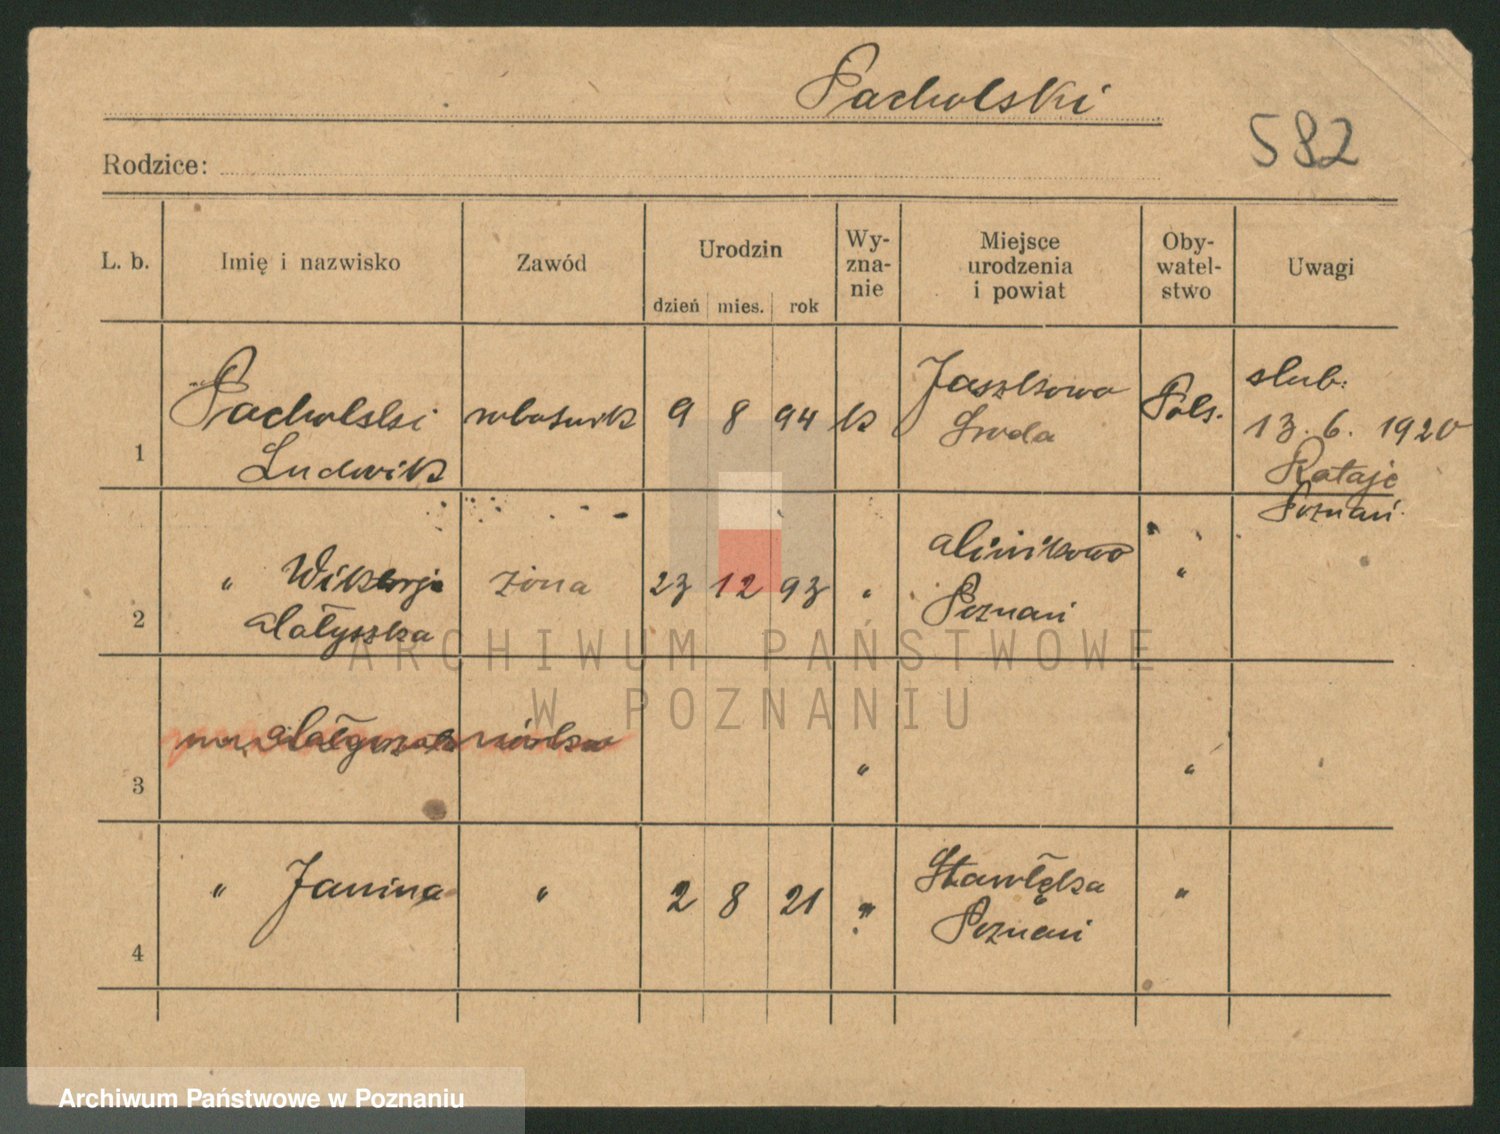 Pacholski
582
Rodzice:
L. b. Imię i nazwisko Zawód Urodzin dzień mies. rok Wy-zna-nie Miejsce urodzenia i powiat Oby-watel-stwo Uwagi
1 Pacholski Ludwik robotnik 9 8 94 k Jaszkowo Środa Pols. slub:
13. 6. 1920
Rataje
Poznań
2 " Wiktorja Małyszka żona 23 12 93 " Minikowo Poznań "
3 Małgorzata córka " "
4 " Janina " 2 8 21 " Poznań "
ARCHIWUM PAŃSTWOWE
W POZNANIU
Archiwum Państwowe w Poznaniu